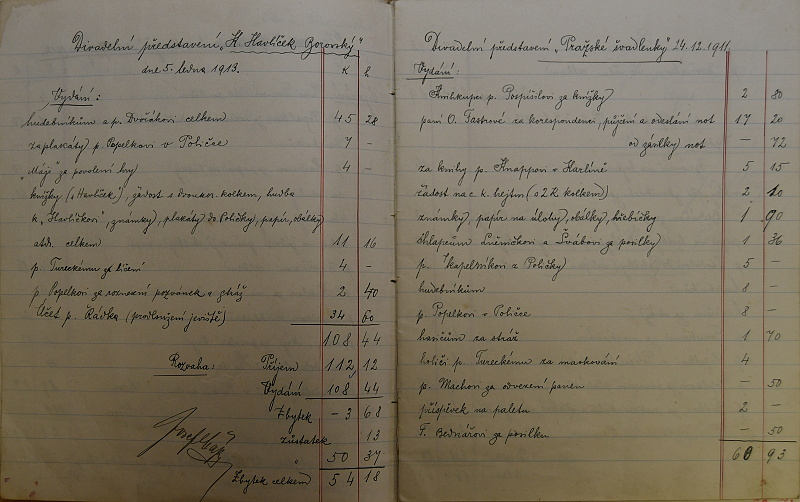 Divadelní představení „K. Havlíček Borovský"
dne 5. ledna 1913.
K h
Vydání:
hudebníkům a p. Dvořákovi celkem 45 28
za plakáty p. Popelkovi v Poličce 7 –
„Máji" za povolení hry 4 –
knížky („Havlíček"), žádost s dvoukor. kolkem, hudba
k „Havlíčkovi", známky, plakáty do Poličky, papír, obálky
atd. celkem 11 16
p. Tureckému za líčení 4 –
p. Popelkovi za roznesení pozvánek a stráž 2 40
Účet p. Řádka (prodloužení jeviště) 34 60
108 44
Rozvaha: Příjem 112,12
Vydání 108 44
Zbytek – 3 68
zůstatek 13
" 50 37
Zbytek celkem 54 18
Josef
Divadelní představení „Pražské švadlenky" 24.12.1911.
Vydání:
Knihkupci p. Pospíšilovi za knížky 2 80
paní O. Fastrové za korespondenci, půjčení a odeslání not 17 20
od zásilky not – 72
za knihy p. Knappovi v Karlíně 5 15
žádost na c. k. hejtm. (s 2 K kolkem) 2 10
známky, papír na úlohy, obálky, hřebíčky 1 90
chlapcům Lněničkovi a Švábovi za posílky 1 36
p. kapelníkovi z Poličky 5 –
hudebníkům 8 –
p. Popelkovi v Poličce 8 –
hasičům za stráž 1 70
holiči p. Tureckému za maskování 4
p. Machovi za odvezení panen – 50
příspěvek na paletu 2 –
F. Bednářovi za posílku – 50
60 93